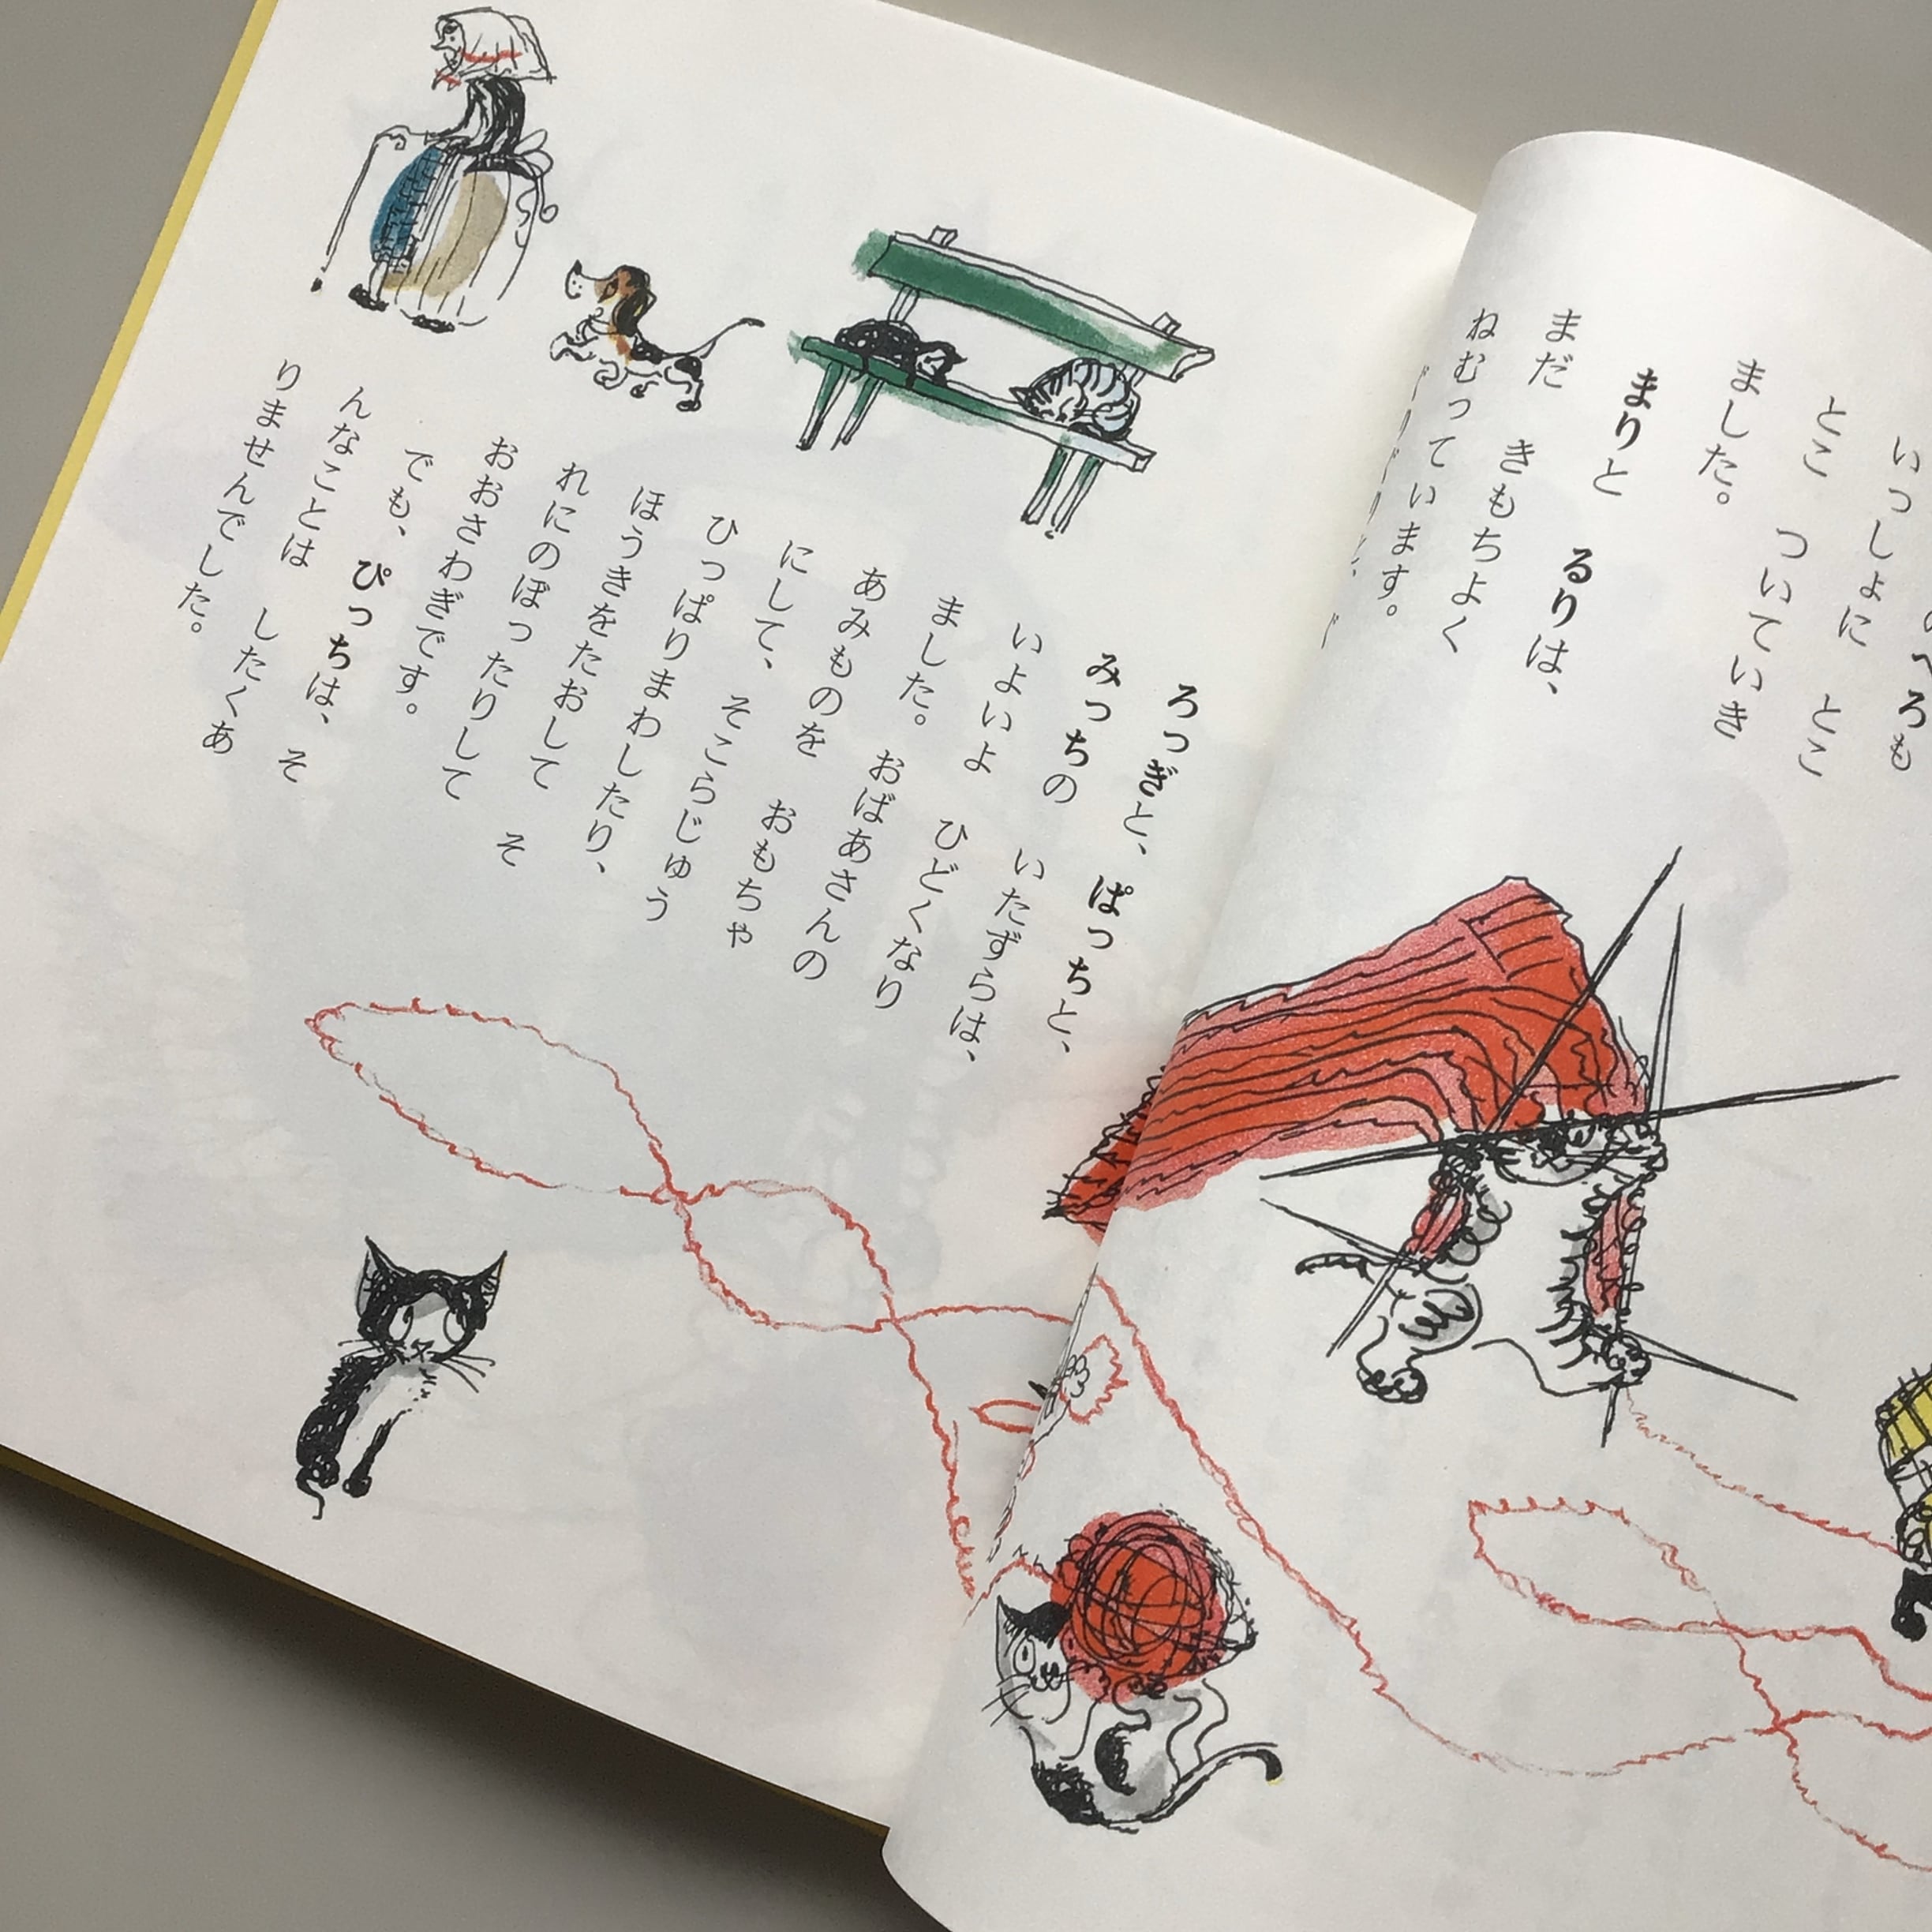 いっしょに とこ
とこ ついていき
ました。
まりと るりは、
まだ きもちよく
ねむっています。
ろっぎと、 ぱっちと、
みっちの いたずらは、
いよいよ ひどくなり
ました。 おばあさんの
あみものを おもちゃ
にして、 そこらじゅう
ひっぱりまわしたり、
ほうきをたおして そ
れにのぼったりして
おおさわぎです。
でも、 ぴっちは、 そ
んなことは したくあ
りませんでした。